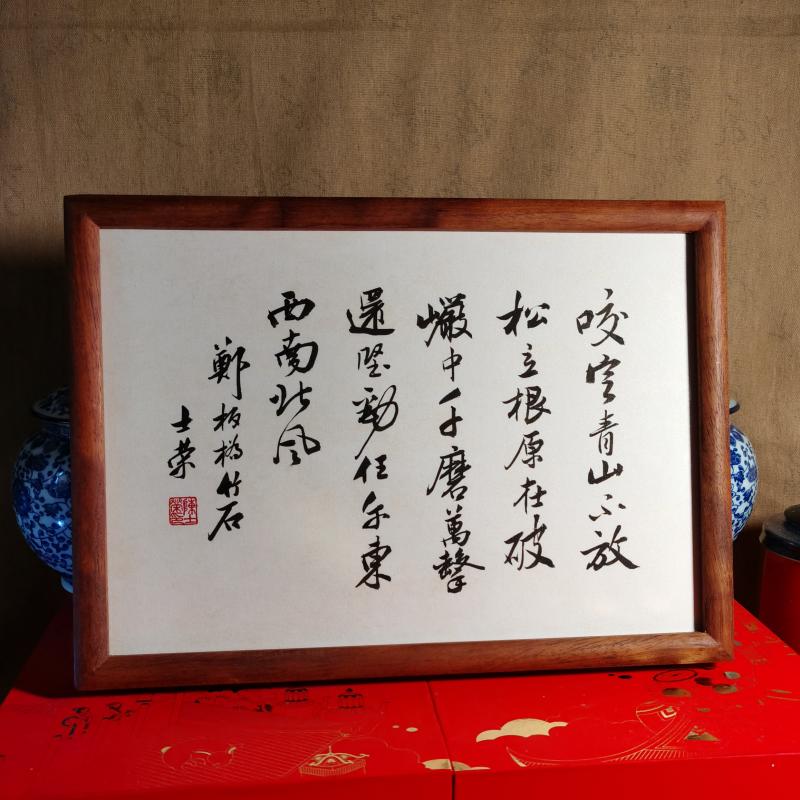 咬定青山不放
松立根原在破
巖中千磨萬擊
還堅勁任尔東
西南北风
鄭板橋竹石
士荣